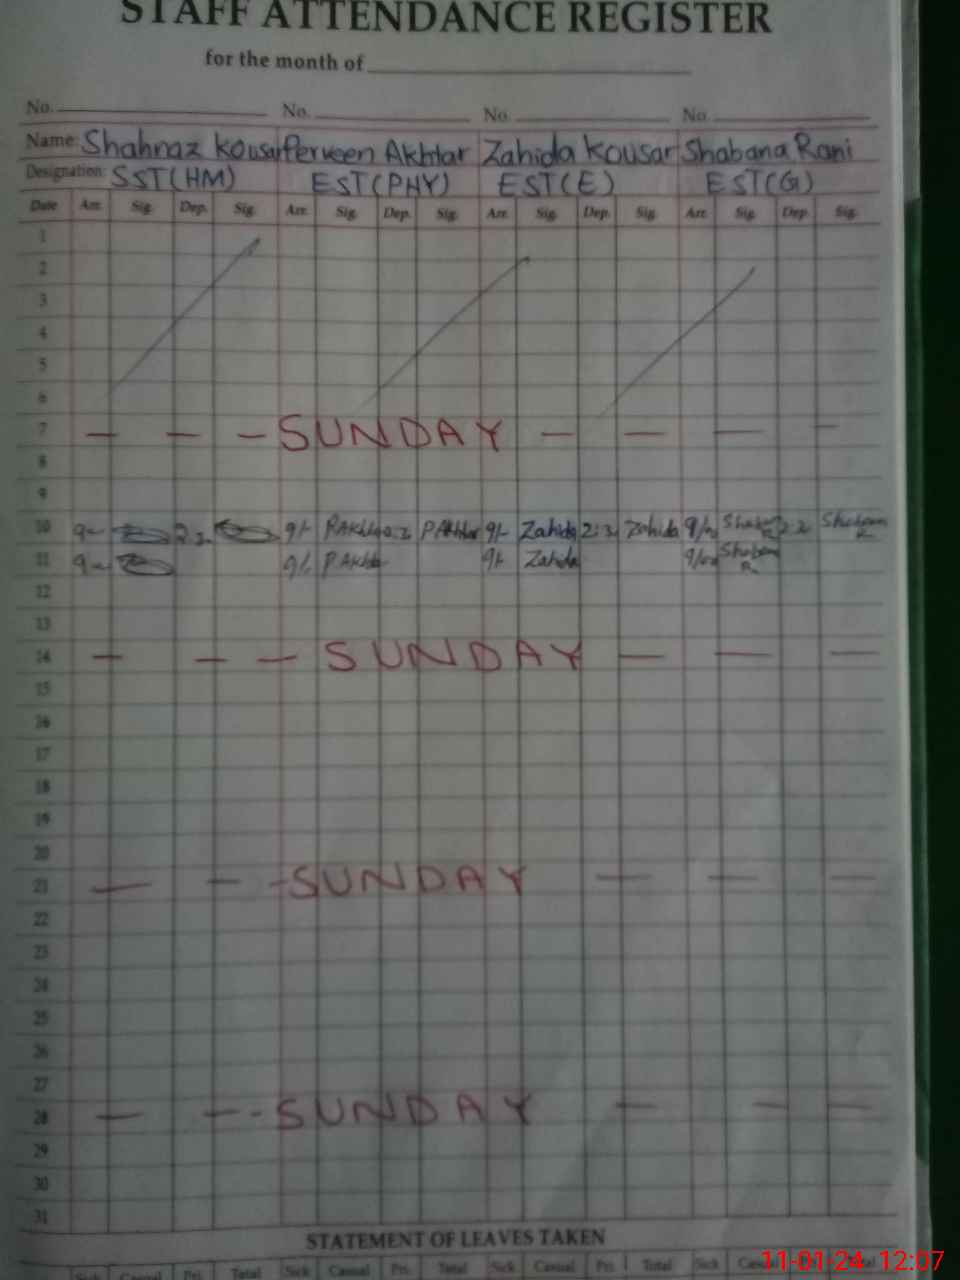 STAFF ATTENDANCE REGISTER
for the month of
No. No. No. No.
Name: Shahnaz Kousar Perveen Akhtar Zahida Kousar Shabana Rani
Designation: SST(HM) EST(PHY) EST(E) EST(G)
Date Arr. Sig. Dep. Sig. Arr. Sig. Dep. Sig. Arr. Sig. Dep. Sig. Arr. Sig. Dep. Sig.
1
2
3
4
5
6
7 SUNDAY
8
9
10 PAkhtar PAkhtar Zahida Zahida
11 PAkhtar Zahida
12
13
14 SUNDAY
15
16
17
18
19
20
21 SUNDAY
22
23
24
25
26
27
28 SUNDAY
29
30
31
STATEMENT OF LEAVES TAKEN
Sick Casual Pri. Total Sick Casual Pri. Total Sick Casual Pri. Total Sick
11-01-24 12:07